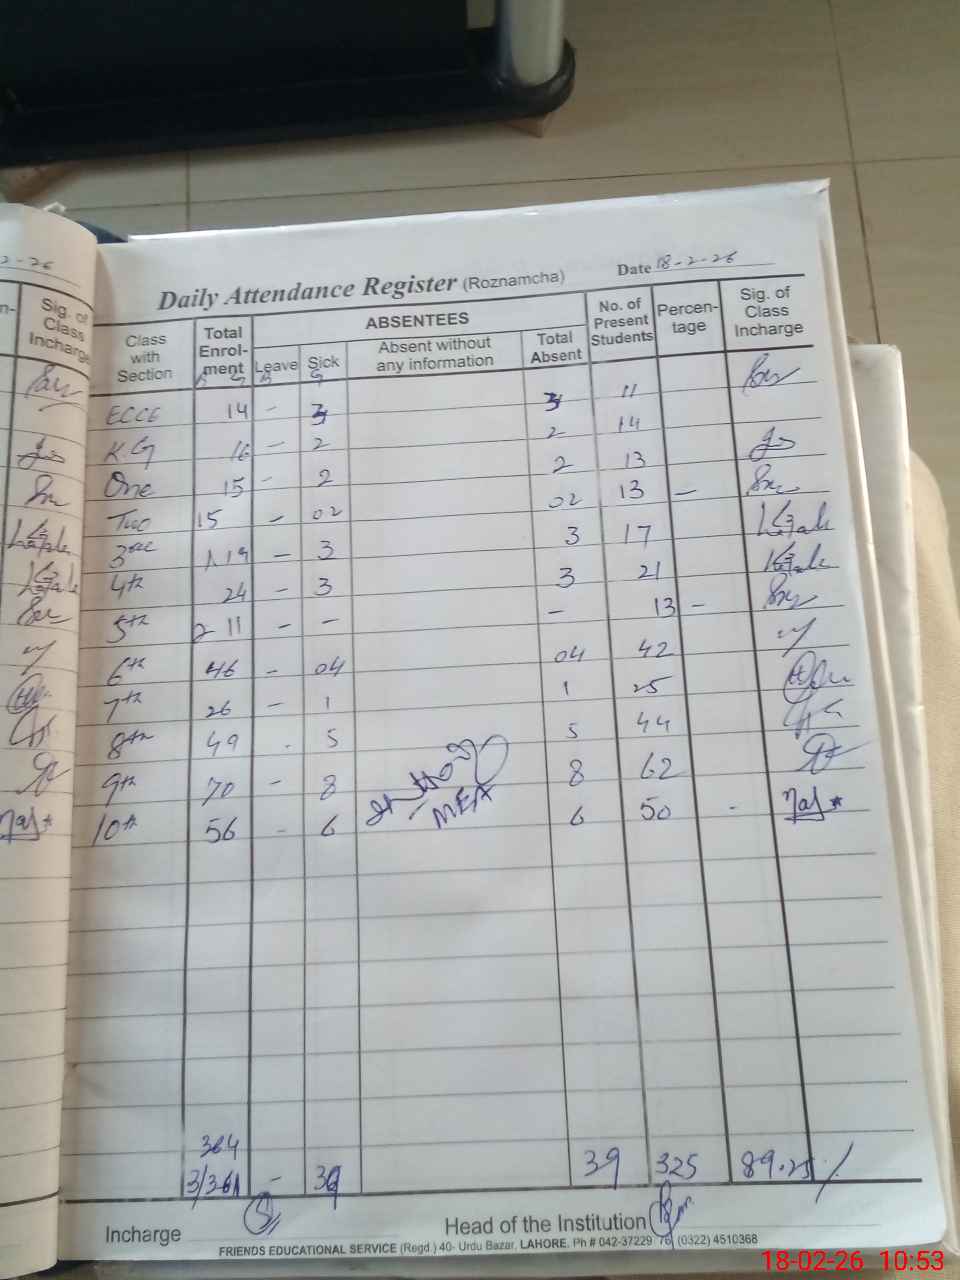 2-26
Date 18-2-26
Daily Attendance Register (Roznamcha)
Sig. of Class Incharge
Class with Section
Total Enrol-ment
ABSENTEES
Leave
Sick
Absent without any information
Total Absent
No. of Present Students
Percen-tage
Sig. of Class Incharge
ECCE 14 - 3 3 11
K.G 16 - 2 2 14
One 15 - 2 2 13
Two 15 - 02 02 13 -
3 19 - 3 3 17
4th 24 - 3 3 21
5th 2 11 - - - 13 -
6th 46 - 04 04 42
7th 26 - 1 1 25
8th 49 . 5 5 44
9th 70 - 8 8 62
10th 56 - 6 6 50 -
MEA
364
3/361 - 39 39 325 89.25/
Incharge
Head of the Institution
FRIENDS EDUCATIONAL SERVICE (Regd.) 40- Urdu Bazar, LAHORE. Ph # 042-37229 76 (0322) 4510368
18-02-26 10:53